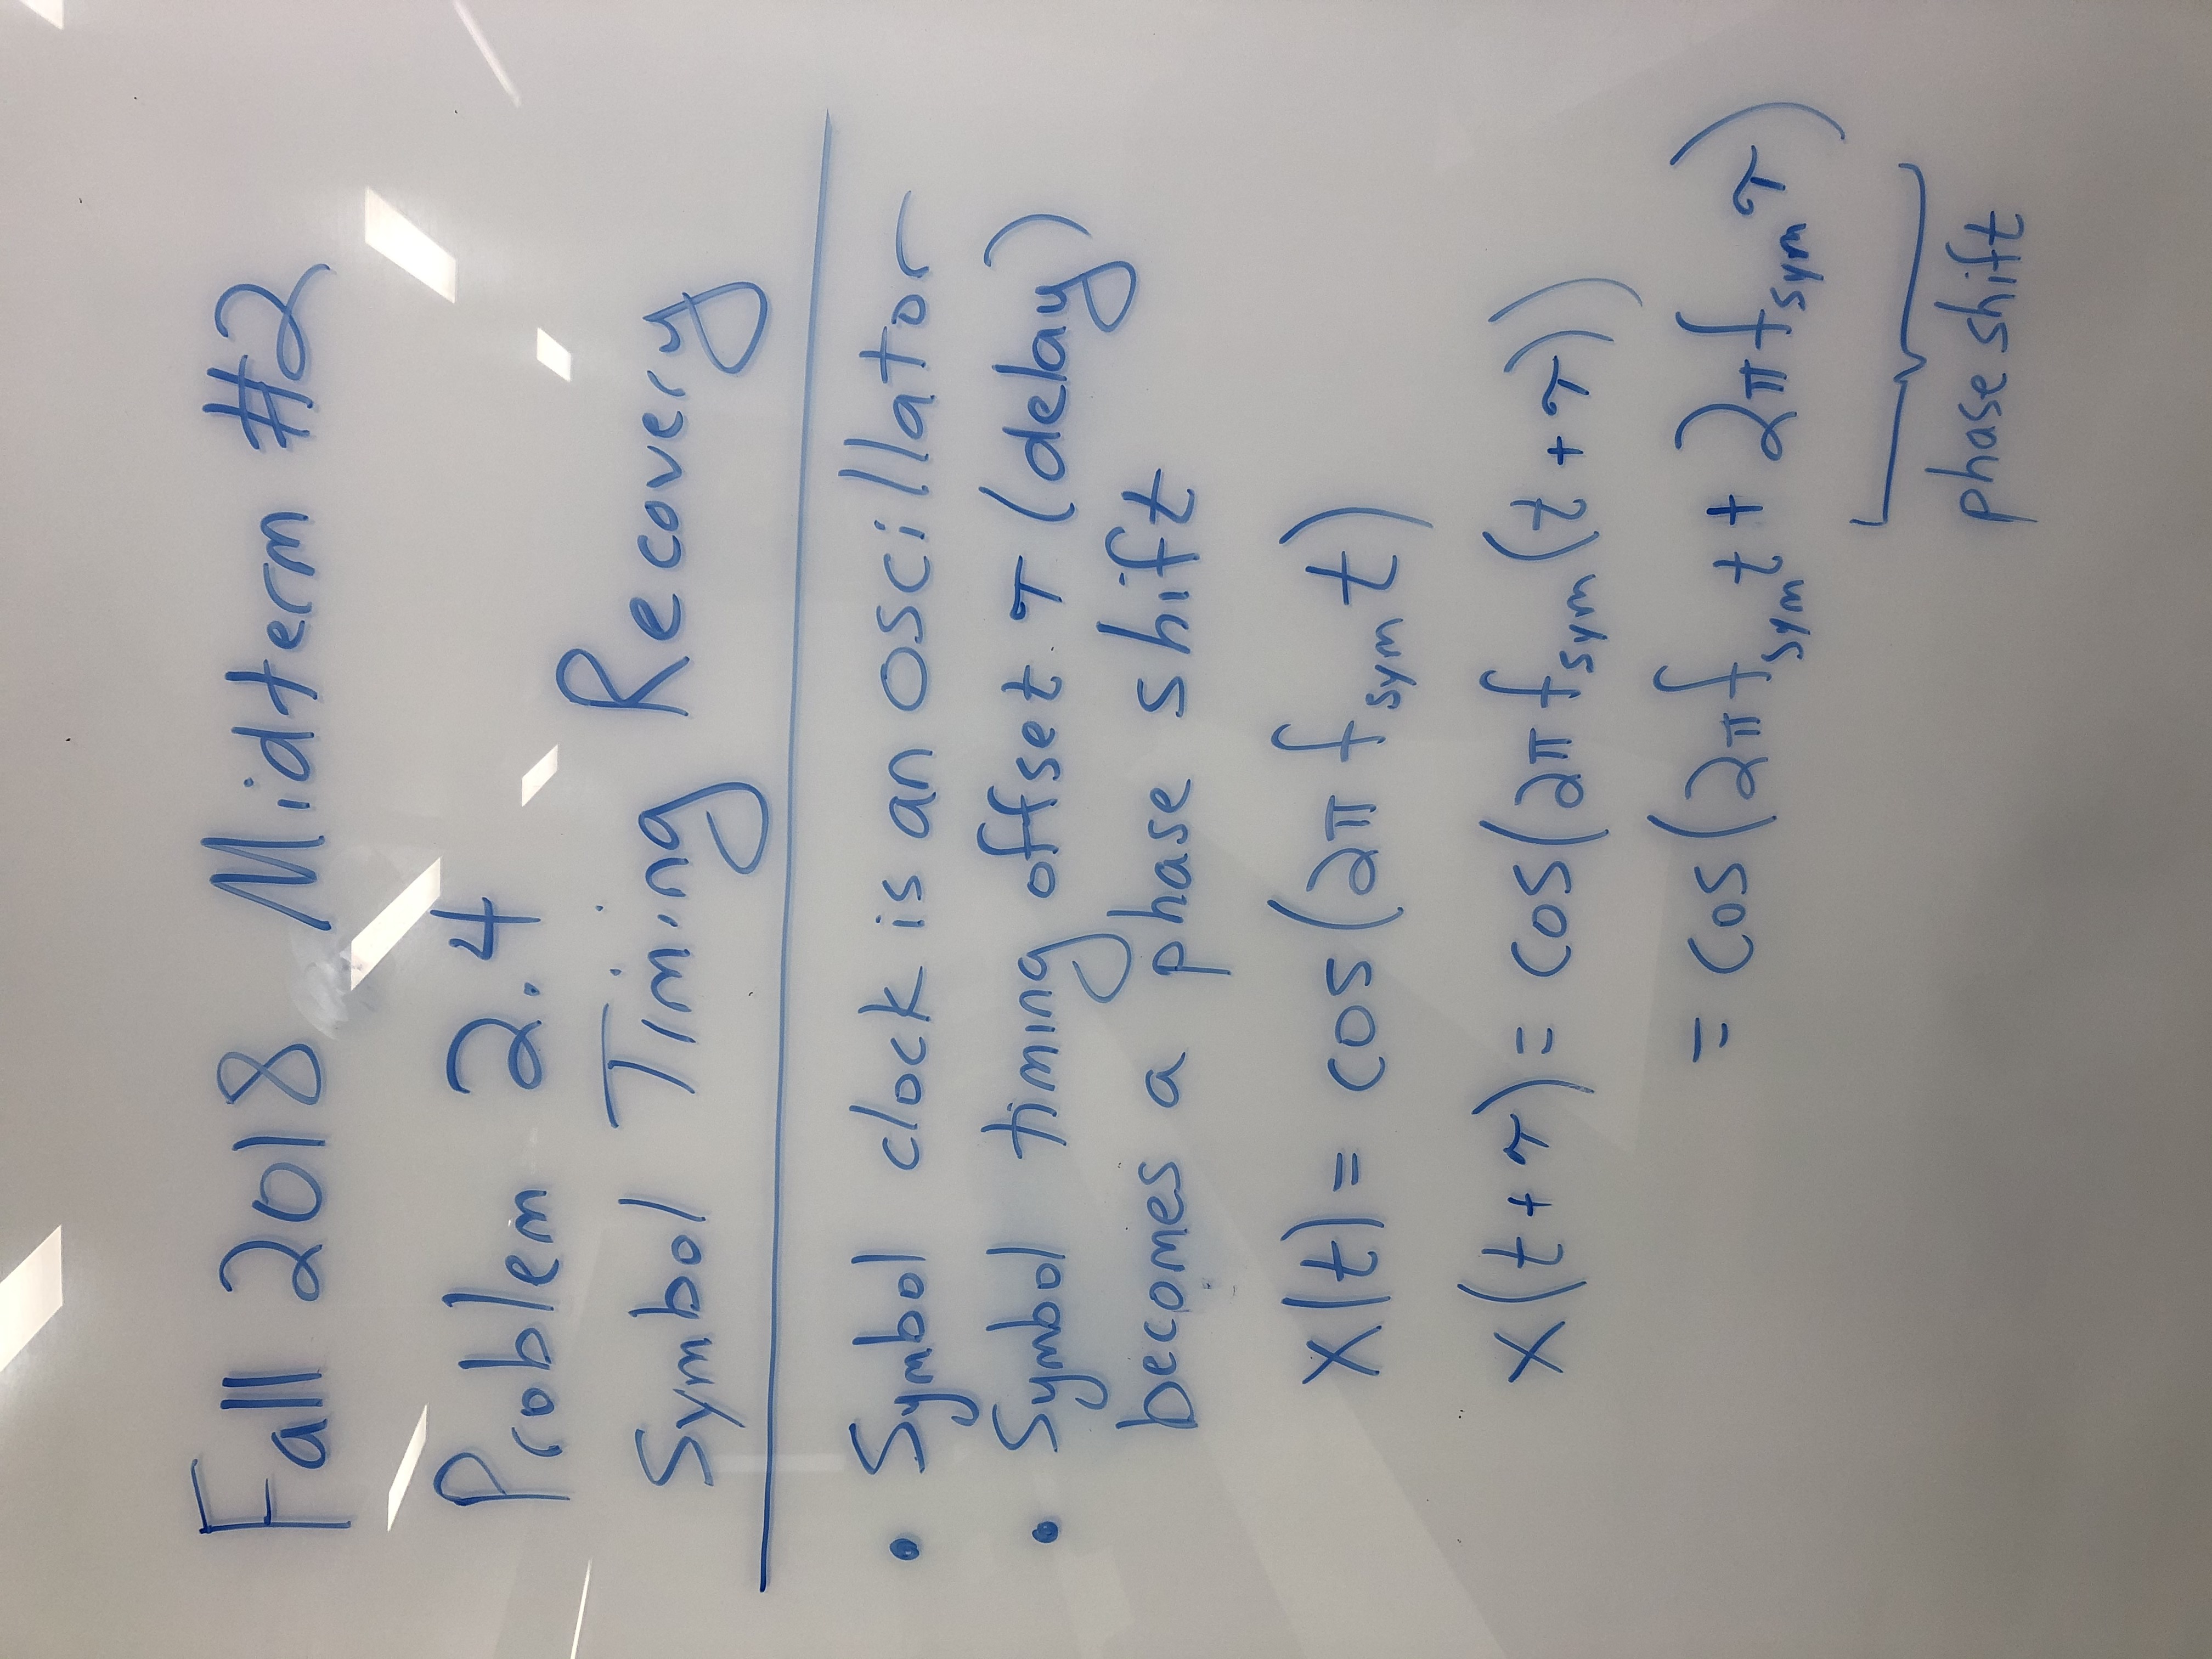 Fall 2018 Midterm #2
Problem 2.4
Symbol Timing Recovery
• Symbol clock is an oscillator
• Symbol timing offset τ (delay)
becomes a phase shift
x(t) = cos(2π f_sym t)
x(t+τ) = cos(2π f_sym (t+τ))
= cos(2π f_sym t + 2π f_sym τ)
phase shift